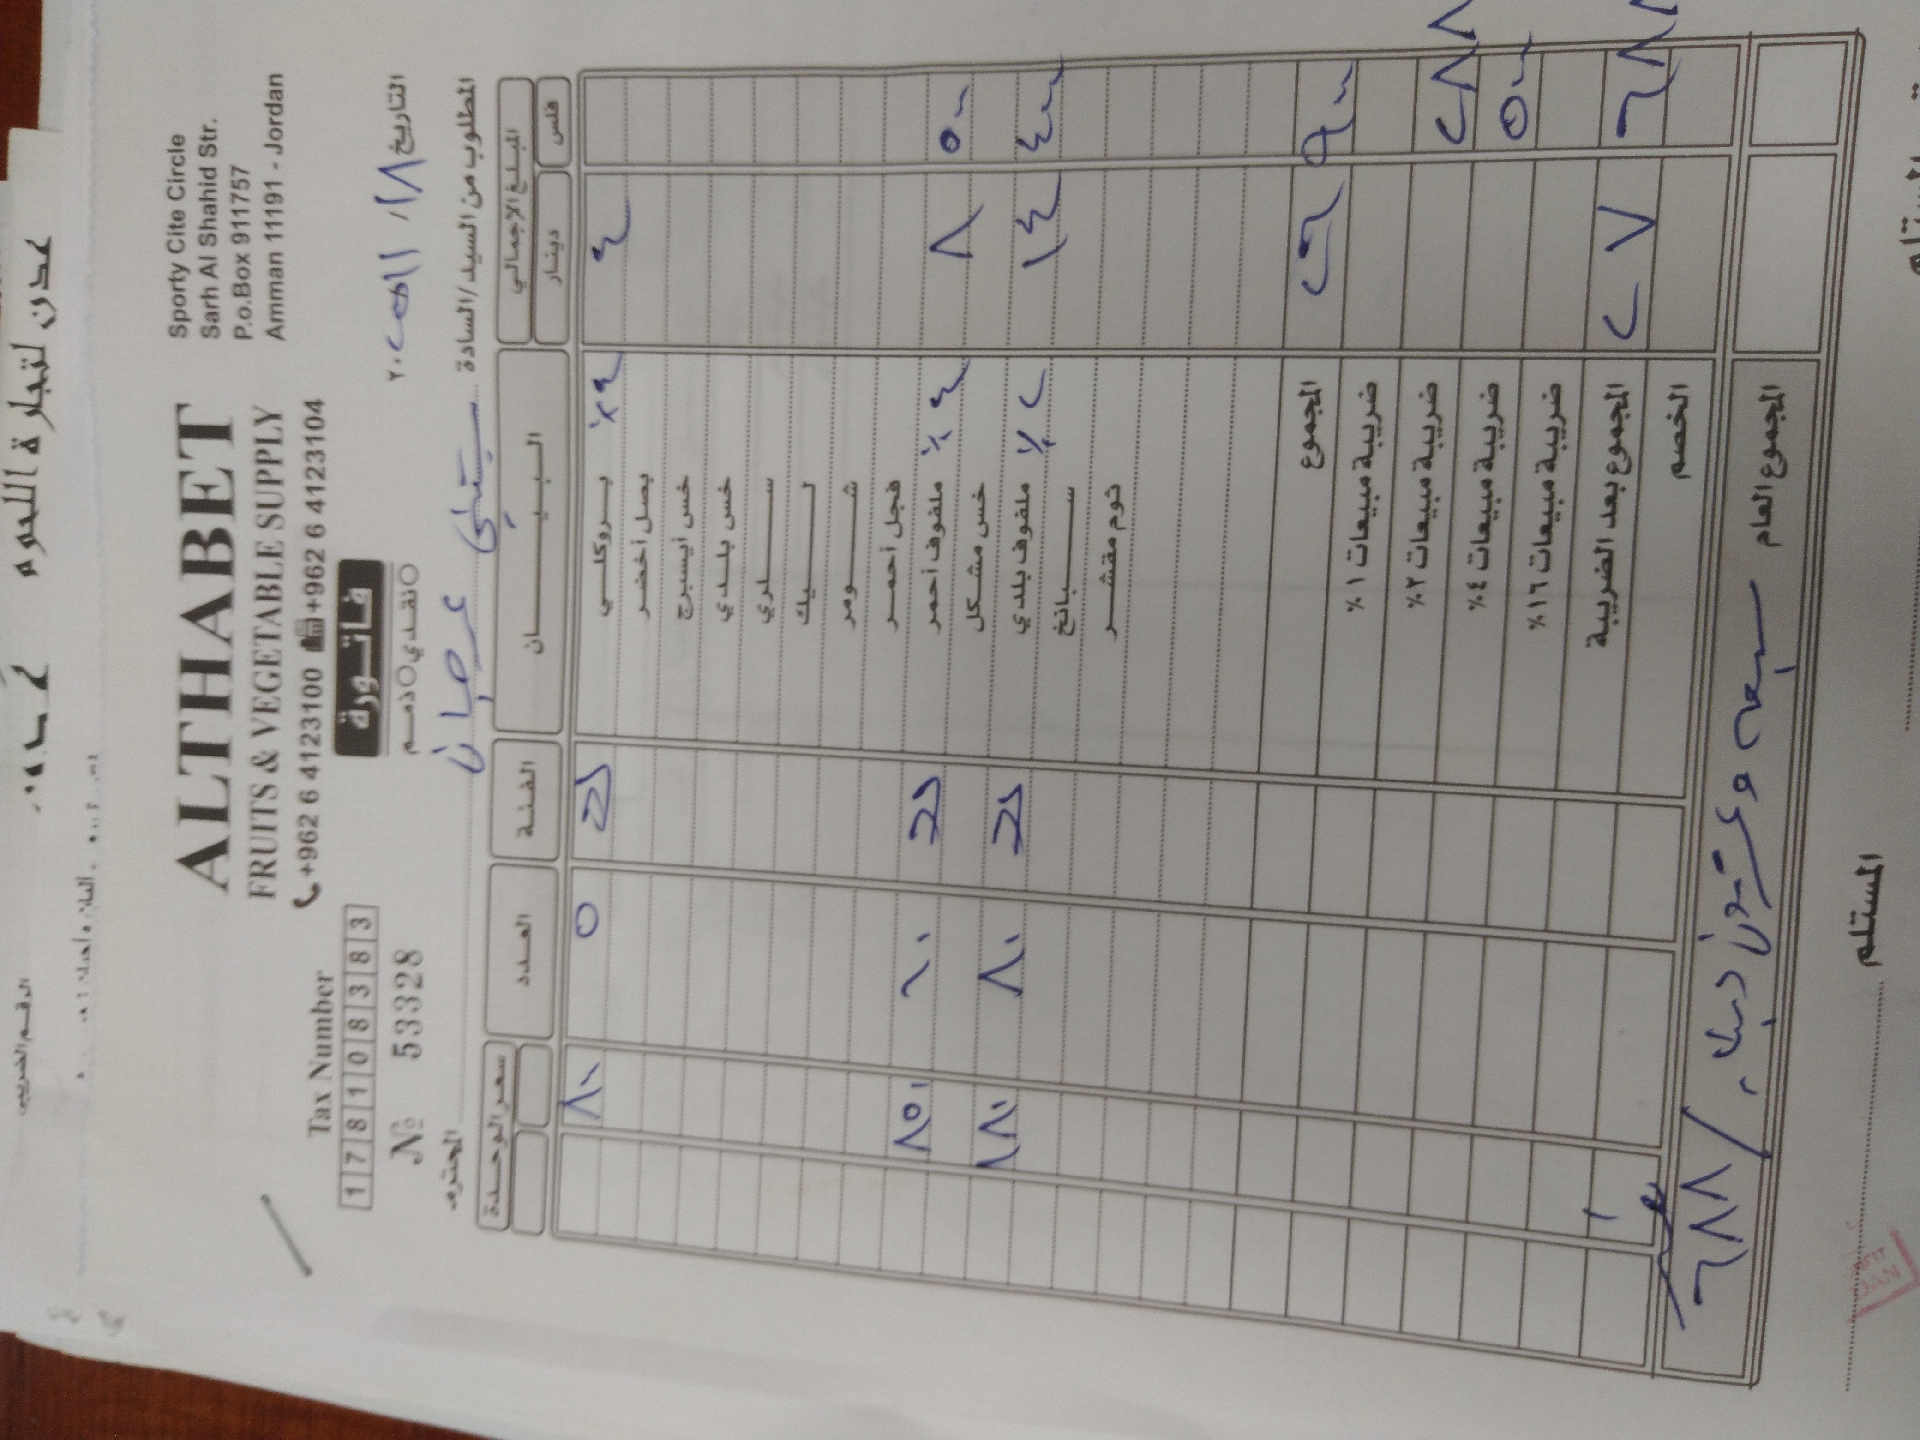 عدن لتجارة اللحوم
الرقم الضريبي
ALTHABET
FRUITS & VEGETABLE SUPPLY
+962 6 4123100 +962 6 4123104
Sporty Cite Circle
Sarh Al Shahid Str.
P.o.Box 911757
Amman 11191 - Jordan
Tax Number
1 7 8 1 0 8 3 8 3
№ 53328
فاتورة
نقدي ذمم
التاريخ ١٨/ ١١/ ٢٠٢٥
المطلوب من السيد/السادة المحترم
المبلغ الإجمالي البيـــــان الفئة العدد سعر الوحدة
فلس دينار
٤ بروكلي ٪٤ ٥ ٨٠٠
بصل أخضر
خس أيسبرج
خس بلدي
سلري
ليك
شومر
فجل أحمر
٥٠٠ ٨ ملفوف أحمر ٪٤ ١٠ ٨٥٠
خس مشكل
٤٠٠ ١٤ ملفوف بلدي ٪٢ ٨٠ ١٨٠
سبانخ
ثوم مقشر
٩٠٠ ٢٦ المجموع
ضريبة مبيعات ١٪
٢٨٨ ضريبة مبيعات ٢٪
٥٠٠ ضريبة مبيعات ٤٪
ضريبة مبيعات ١٦٪
٦٨٨ ٢٧ المجموع بعد الضريبة
الخصم
المجموع العام سبعة وعشرون دينار و ٦٨٨/
المستلم